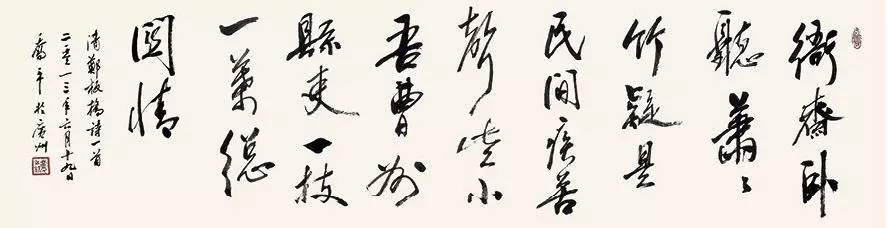 衙齋卧
聽蕭〻
竹疑是
民间疾苦
聲些小
吾曹州
縣吏一枝
一葉總
関情
清鄭板橋詩一首
二零一三年六月十九日
喬平於廣州